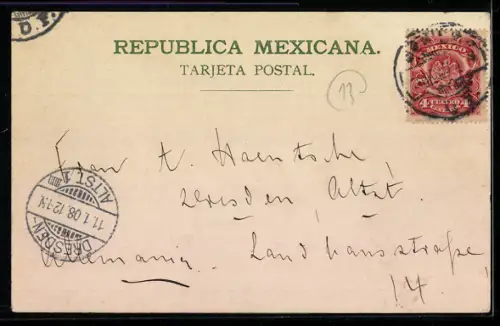 D. F.
REPUBLICA MEXICANA.
TARJETA POSTAL.
MEXICO
4 CUATRO 4
13
Frau A. Haentsche,
Dresden, Altst.
DRESDEN-ALTST. 1
11.1.08.12-1N
Alemania. Landhausstraße
14.